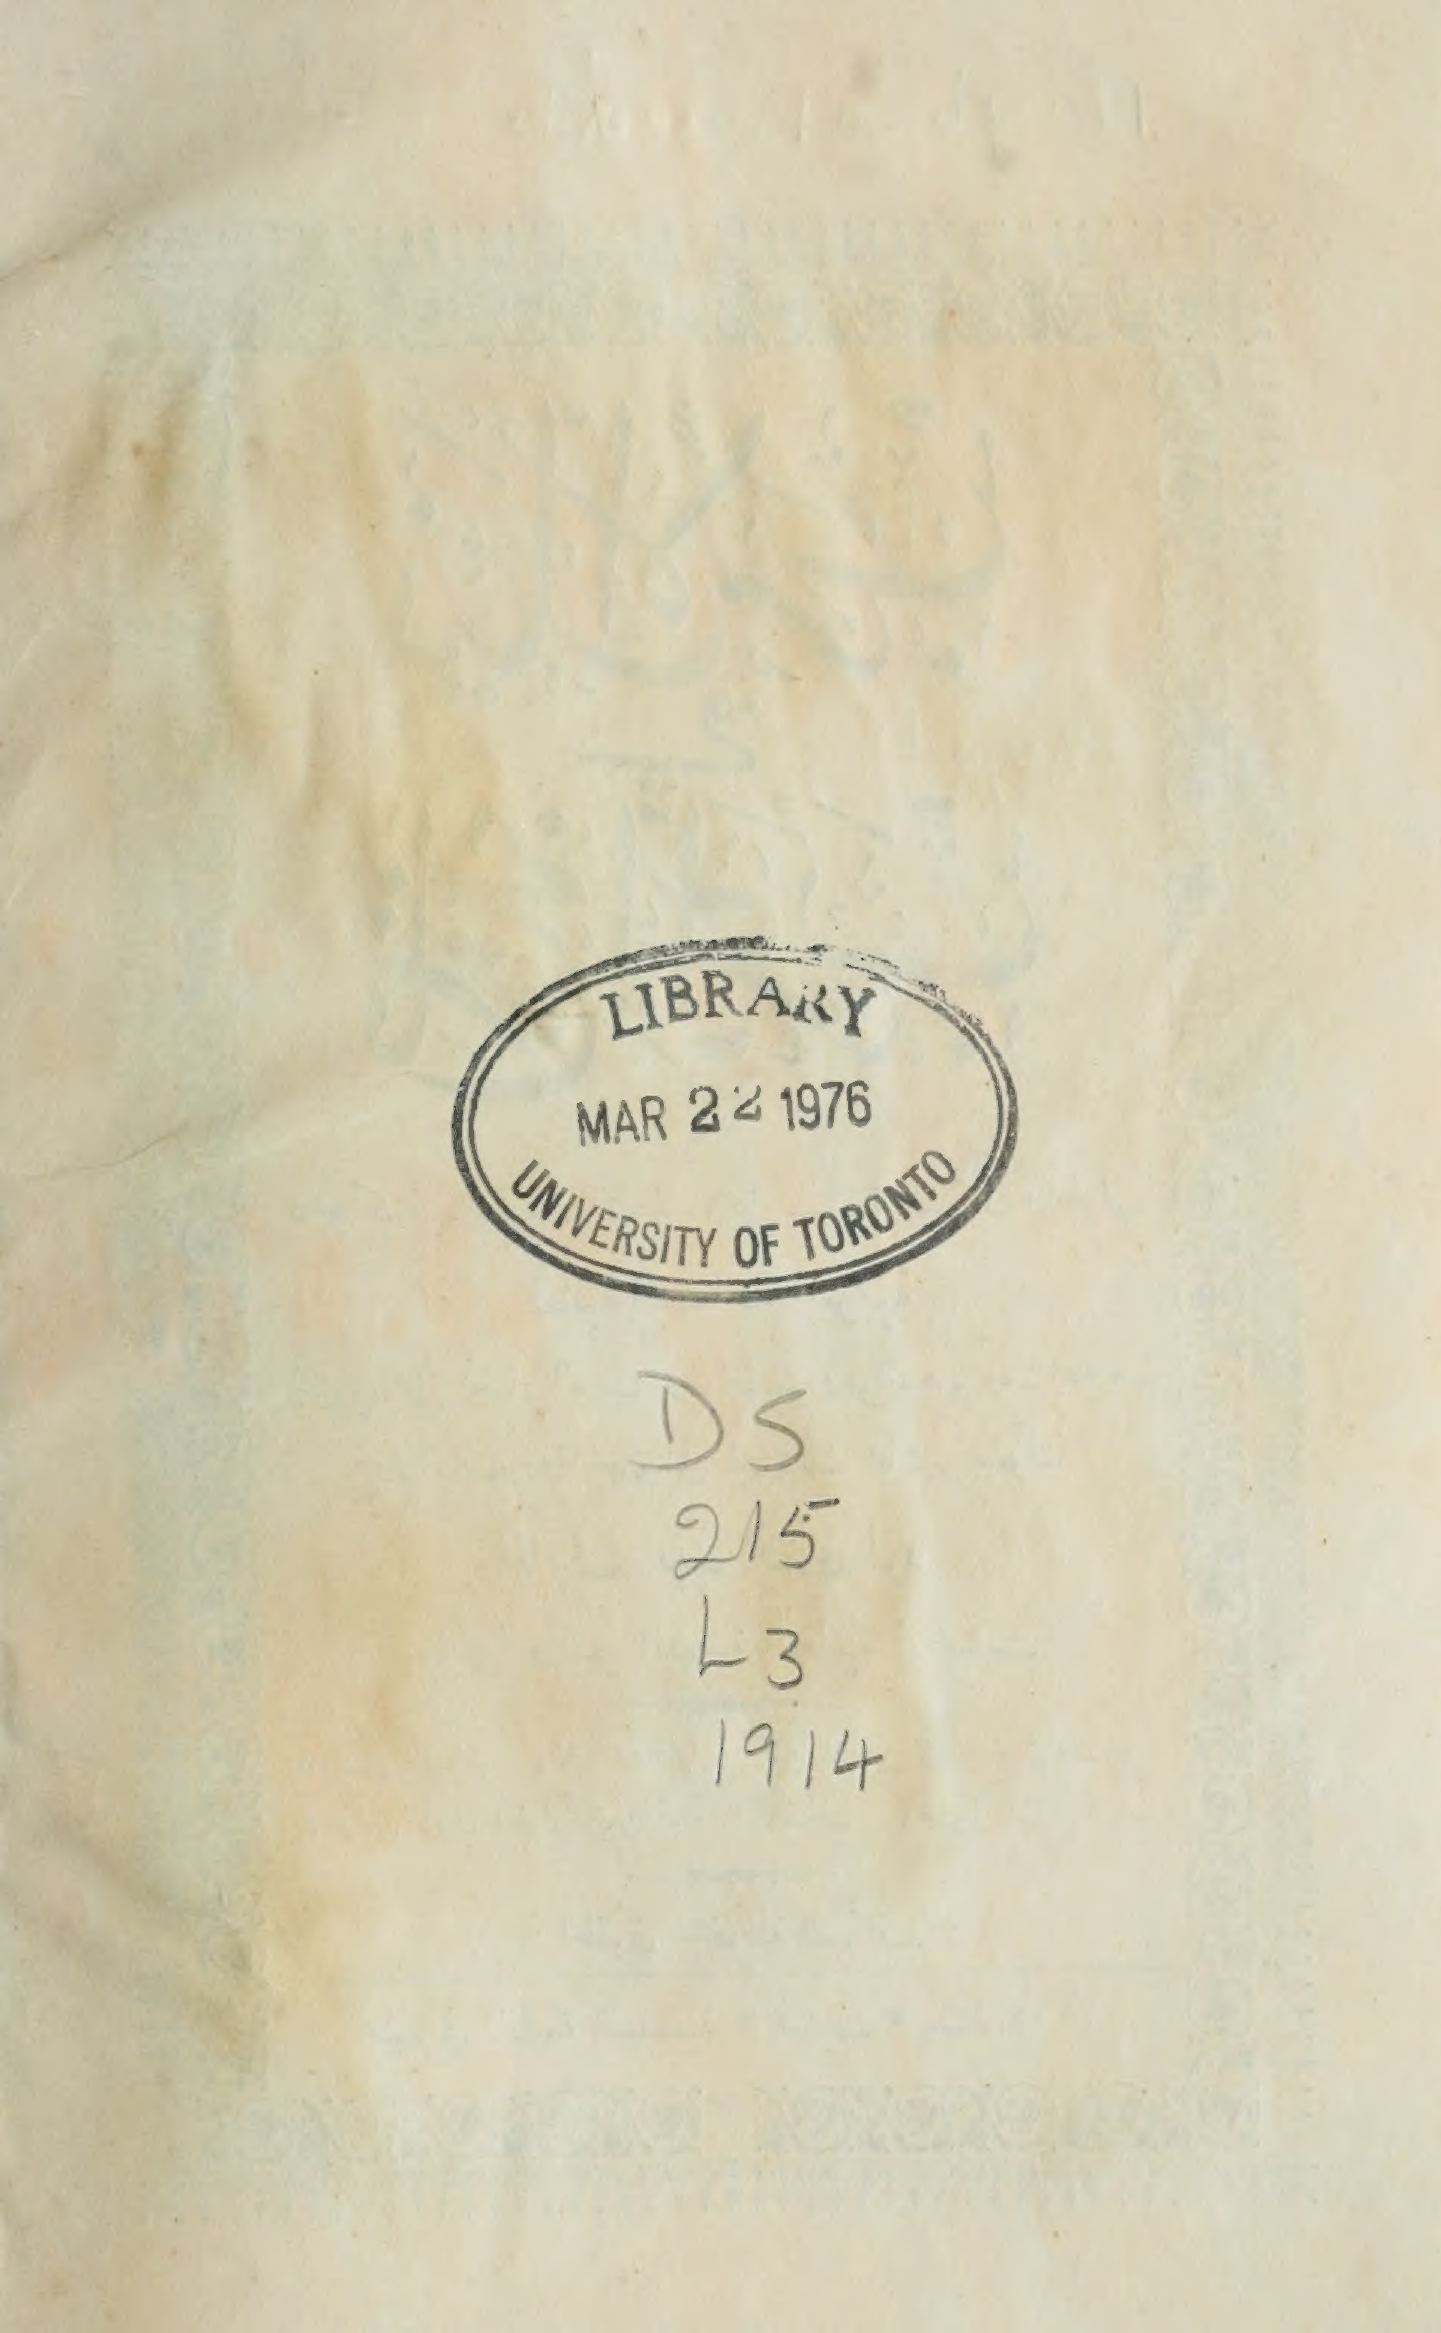 LIBRARY
MAR 22 1976
UNIVERSITY OF TORONTO
DS
215
L3
1914